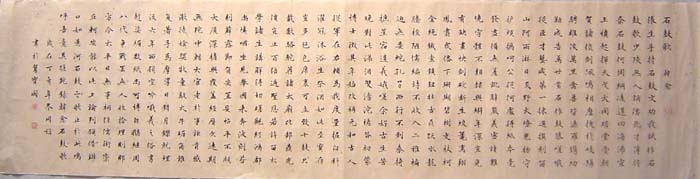 石鼓歌 韓愈
張生手持石鼓文勸我試作石
鼓歌少陵無人謫仙死才薄將
奈石鼓何周綱淩遲四海沸宣
王憤起揮天戈大開明堂受朝
賀諸侯劍珮鳴相磨蒐于岐陽
騁雄俊萬里禽獸皆遮羅鐫功
勒成告萬世鑿石作鼓隳嵯峨
從臣才藝咸第一揀選撰刻留
山阿雨淋日炙野火燎鬼物守
護煩撝呵公從何處得紙本毫
髮盡備無差訛辭嚴義密讀難
曉字體不類隸與蝌年深豈免
有缺畫快劍斫斷生蛟鼉鸞翔
鳳翥眾仙下珊瑚碧樹交枝柯
金繩鐵索鎖鈕壯古鼎躍水龍
騰梭陋儒編詩不收入二雅褊
迫無委蛇孔子西行不到秦掎
摭星宿遺羲娥嗟余好古生苦
晚對此涕淚雙滂沱憶昔初蒙
博士徵其年始改稱元和故人
從軍在右輔為我度量掘臼科
濯冠沐浴告祭酒如此至寶存
豈多氈包席裹可立致十鼓只
載數駱駝薦諸太廟比郜鼎光
價豈止百倍過聖恩若許留太
學諸生講解得切磋觀經鴻都
尚填咽坐見舉國來奔波剜苔
剔蘚露節角安置妥帖平不頗
大廈深簷與蓋覆經歷久遠期
無陀中朝大官老於事詎肯感
激徒媕婀牧童敲火牛礪角誰
復著手為摩挲日銷月鑠就埋
沒六年西顧空吟哦羲之俗書
趁姿媚數紙尚可博白鵝繼周
八代爭戰罷無人收拾理則那
方今太平日無事柄任儒術崇
丘軻安能以此上論列願借辯
口如懸河石鼓之歌止於此嗚
呼吾意其蹉跎錄韓愈石鼓歌